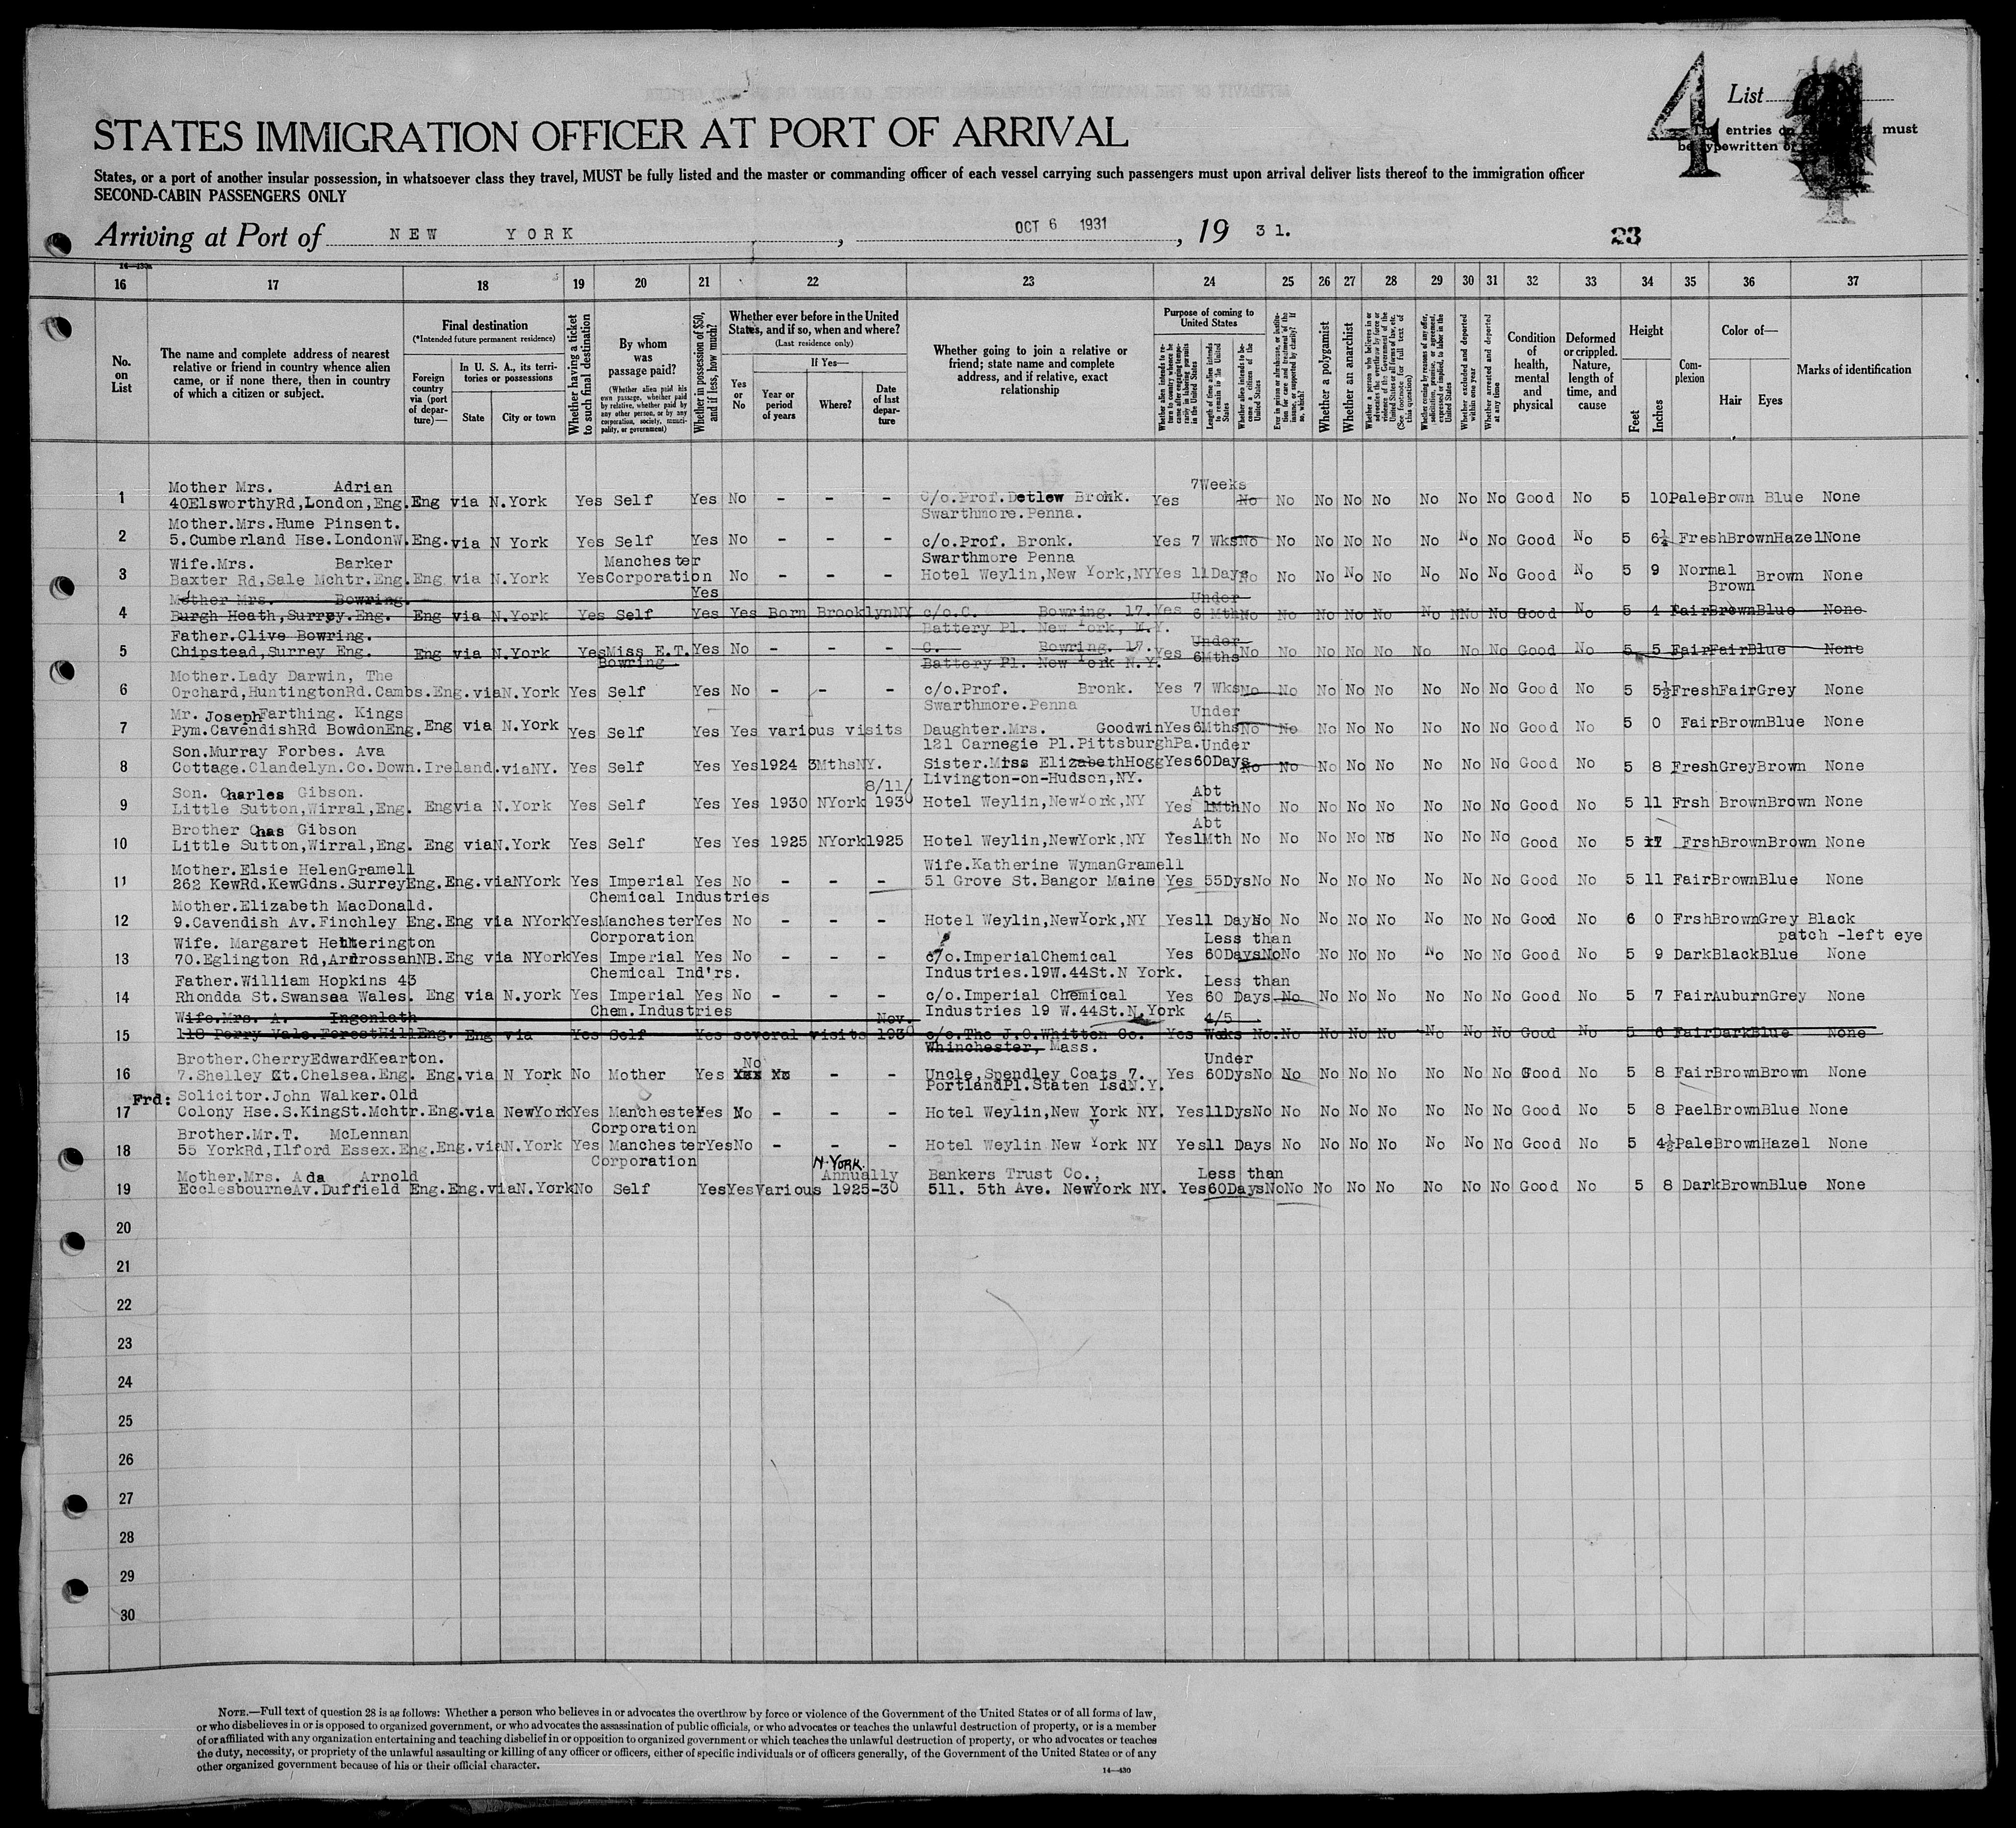 4 List
The entries on must
be typewritten or
STATES IMMIGRATION OFFICER AT PORT OF ARRIVAL
States, or a port of another insular possession, in whatsoever class they travel, MUST be fully listed and the master or commanding officer of each vessel carrying such passengers must upon arrival deliver lists thereof to the immigration officer
SECOND-CABIN PASSENGERS ONLY
Arriving at Port of NEW YORK, OCT 6 1931, 19 31.
23
16 17 18 19 20 21 22 23 24 25 26 27 28 29 30 31 32 33 34 35 36 37
No. on List
The name and complete address of nearest relative or friend in country whence alien came, or if none there, then in country of which a citizen or subject.
Final destination
(*Intended future permanent residence)
Foreign country via (port of departure)—
In U. S. A., its territories or possessions
State
City or town
Whether having a ticket to such final destination
By whom was passage paid?
(Whether alien paid his own passage, whether paid by relative, whether paid by any other person, or by any corporation, society, municipality, or government)
Whether in possession of $50, and if less, how much?
Whether ever before in the United States, and if so, when and where?
(Last residence only)
Yes or No
If Yes—
Year or period of years
Where?
Date of last departure
Whether going to join a relative or friend; state name and complete address, and if relative, exact relationship
Purpose of coming to United States
Whether alien intends to return to country whence he came after engaging temporarily in laboring pursuits in the United States
Length of time alien intends to remain in the United States
Whether alien intends to become a citizen of the United States
Ever in prison or almshouse, or institution for care and treatment of the insane, or supported by charity? If so, which?
Whether a polygamist
Whether an anarchist
Whether a person who believes in or advocates the overthrow by force or violence of the Government of the United States or all forms of law, etc. (See footnote for full text of this question)
Whether coming by reasons of any offer, solicitation, promise, or agreement, expressed or implied, to labor in the United States
Whether excluded and deported within one year
Whether arrested and deported at any time
Condition of health, mental and physical
Deformed or crippled. Nature, length of time, and cause
Height
Feet
Inches
Complexion
Color of—
Hair
Eyes
Marks of identification
7Weeks
1 Mother Mrs. Adrian
40ElsworthyRd,London,Eng. Eng via N.York Yes Self Yes No - - - C/o.Prof.Detlew Bronk. Yes No No No No No No No No Good No 5 10 Pale Brown Blue None
Swarthmore.Penna.
2 Mother.Mrs.Hume Pinsent.
5.Cumberland Hse.LondonW. Eng.via N York Yes Self Yes No - - - c/o.Prof. Bronk. Yes 7 Wks No No No No No No No No Good No 5 6¼ Fresh Brown Hazel None
Swarthmore Penna
3 Wife.Mrs. Barker Manchester
Baxter Rd,Sale Mchtr.Eng. Eng via N.York Yes Corporation No - - - Hotel Weylin,New York,NY Yes 11Days No No No No No No No No Good No 5 9 Normal Brown Brown None
Yes
4 Mother Mrs. Bowring. Under
Burgh Heath,Surrey.Eng. Eng via N.York Yes Self Yes Yes Born BrooklynNY c/o.C. Bowring. 17. Yes 6 Mth No No No No No No No No Good No 5 4 Fair Brown Blue None
Battery Pl. New York, N.Y.
5 Father.Clive Bowring. Under
Chipstead,Surrey Eng. Eng via N.York Yes Miss E.T. Yes No - - - C. Bowring. 17. Yes 6Mths No No No No No No No No Good No 5 5 Fair Fair Blue None
Bowring Battery Pl. New York N.Y.
6 Mother.Lady Darwin, The
Orchard,HuntingtonRd.Cambs.Eng.viaN.York Yes Self Yes No - - - c/o.Prof. Bronk. Yes 7 Wks No No No No No No No No Good No 5 5½ Fresh Fair Grey None
Swarthmore.Penna
7 Mr. Joseph Farthing. Kings Under
Pym.CavendishRd BowdonEng. Eng via N.York Yes Self Yes Yes various visits Daughter.Mrs. Goodwin Yes 6Mths No No No No No No No No Good No 5 0 Fair Brown Blue None
121 Carnegie Pl.PittsburghPa.
8 Son.Murray Forbes. Ava Under
Cottage.Clandelyn.Co.Down.Ireland.viaNY. Yes Self Yes Yes 1924 3Mths NY. Sister.Miss ElizabethHogg Yes 60Days No No No No No No No No Good No 5 8 Fresh Grey Brown None
Livington-on-Hudson,NY.
9 Son. Charles Gibson. 8/11/ Abt
Little Sutton,Wirral,Eng. Engvia N.York Yes Self Yes Yes 1930 NYork 1930 Hotel Weylin,NewYork,NY Yes 1Mth No No No No No No No No Good No 5 11 Frsh Brown Brown None
10 Brother Chas Gibson Abt
Little Sutton,Wirral,Eng. Eng viaN.York Yes Self Yes Yes 1925 NYork 1925 Hotel Weylin,NewYork,NY Yes 1Mth No No No No No No No No Good No 5 Frsh Brown Brown None
11 Mother.Elsie HelenGramell Wife.Katherine WymanGramell
262 KewRd.KewGdns.SurreyEng.Eng.viaNYork Yes Imperial Yes No - - - 51 Grove St.Bangor Maine Yes 55Dys No No No No No No No No Good No 5 11 Fair Brown Blue None
Chemical Industries
12 Mother.Elizabeth MacDonald.
9.Cavendish Av.Finchley Eng.Eng via NYork Yes Manchester Yes No - - - Hotel Weylin,NewYork,NY Yes 11 Days No No No No No No No No Good No 6 0 Frsh Brown Grey Black
Corporation patch -left eye
13 Wife. Margaret Hetherington Less than
70.Eglington Rd,ArdrossanNB.Eng via NYork Yes Imperial Yes No - - - c/o.ImperialChemical Yes 60Days No No No No No No No No Good No 5 9 Dark Black Blue None
Chemical Ind'rs. Industries.19W.44St.N York.
14 Father.William Hopkins 43 Less than
Rhondda St.Swansea Wales. Eng via N.york Yes Imperial Yes No - - - c/o.Imperial Chemical Yes 60 Days No No No No No No No Good No 5 7 Fair Auburn Grey None
Chem.Industries Industries 19 W.44St.N.York
15 Wife.Mrs. A. Ingenlath Nov. 4/5
118 Perry Vale.ForestHillEng. Eng via Yes Self Yes several visits 1930 c/o.The J.O.Whitten Co. Yes Weks No. No No No No No No No Good No 5 6 Fair Dark Blue None
Whinchester, Mass.
16 Brother.CherryEdwardKearton. No Under
7.Shelley Ct.Chelsea.Eng. Eng.via N York No Mother Yes - - Uncle.Spendley Coats 7. Yes 60Dys No No No No No No No No Good No 5 8 Fair Brown Brown None
PortlandPl.Staten Isd.N.Y.
17 Frd: Solicitor.John Walker.Old
Colony Hse.S.KingSt.Mchtr.Eng.via NewYork Yes Manchester Yes No - - - Hotel Weylin,New York NY. Yes 11Dys No No No No No No No No Good No 5 8 Pael Brown Blue None
Corporation
18 Brother.Mr.T. McLennan
55 YorkRd,Ilford Essex.Eng.Eng.viaN.York Yes Manchester Yes No - - - Hotel Weylin New York NY Yes 11 Days No No No No No No No No Good No 5 4½ Pale Brown Hazel None
Corporation
N.YORK.
19 Mother.Mrs. Ada Arnold Annually Bankers Trust Co., Less than
EcclesbourneAv.Duffield Eng.Eng.viaN.York No Self Yes Yes Various 1925-30 511. 5th Ave. NewYork NY. Yes 60Days No No No No No No No No Good No 5 8 Dark Brown Blue None
20
21
22
23
24
25
26
27
28
29
30
NOTE.—Full text of question 28 is as follows: Whether a person who believes in or advocates the overthrow by force or violence of the Government of the United States or of all forms of law,
or who disbelieves in or is opposed to organized government, or who advocates the assassination of public officials, or who advocates or teaches the unlawful destruction of property, or is a member
of or affiliated with any organization entertaining and teaching disbelief in or opposition to organized government or which teaches the unlawful destruction of property, or who advocates or teaches
the duty, necessity, or propriety of the unlawful assaulting or killing of any officer or officers, either of specific individuals or of officers generally, of the Government of the United States or of any
other organized government because of his or their official character.
14—430